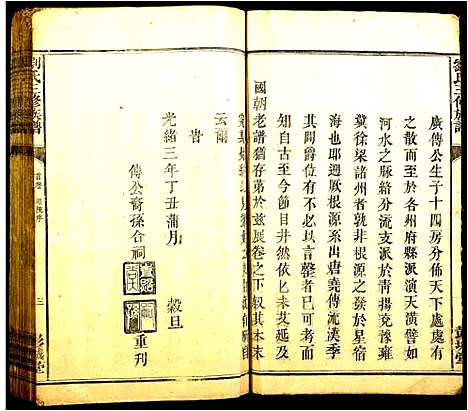 廣傳公生子十四房分佈天下處處有
之散而至於各州府縣派演天潢譬如
河水之脈絡分流支派於青揚兗豫雍
冀徐梁諸州者孰非根源之發於星宿
海也耶廻厥根源系出唐堯傳流漢季
其間爵位有不可以言罄者已
知自古至今歷歷井然依匕未艾也考
國朝老譜猶存苐於玆展卷之下叙其本末
云爾
旹
光緒三年丁丑蒲月 穀旦
傳公裔孫合祠 重刊
劉氏三修族譜
首卷
三
彭城堂